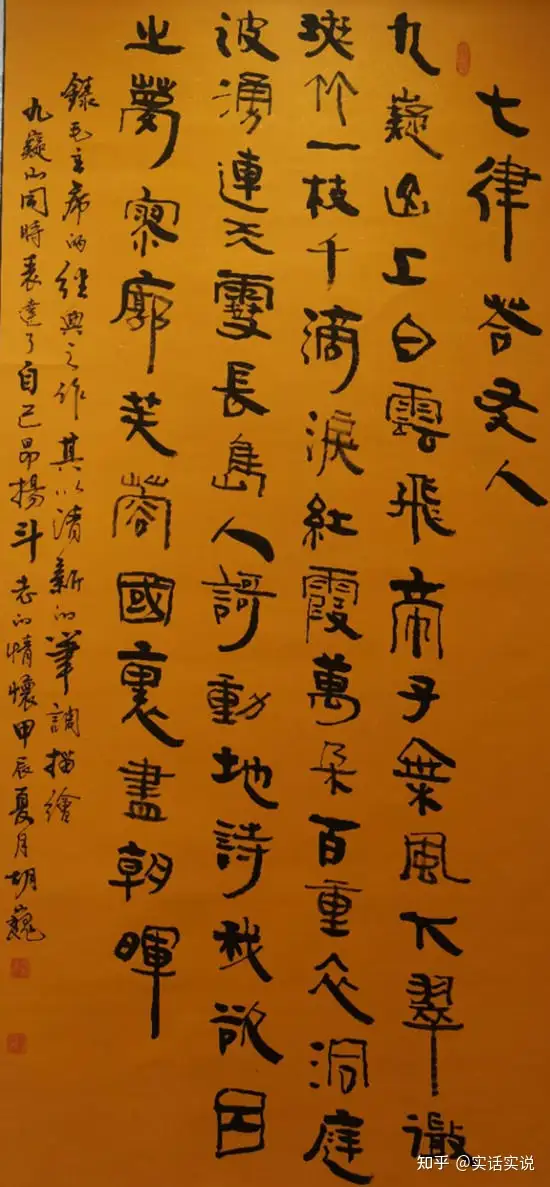 七律 荅友人
九嶷山上白雲飛帝子椉風下翠微
斑竹一枝千滴淚紅霞萬朵百重衣洞庭
波湧連天雪長島人謌動地詩我欲因
之夢寥廓芙蓉國裏盡朝暉
錄毛主席的經典之作其以清新的筆調描繪
九嶷山同時表達了自己昂揚斗志的情懷甲辰夏月胡巍
知乎 @实话实说